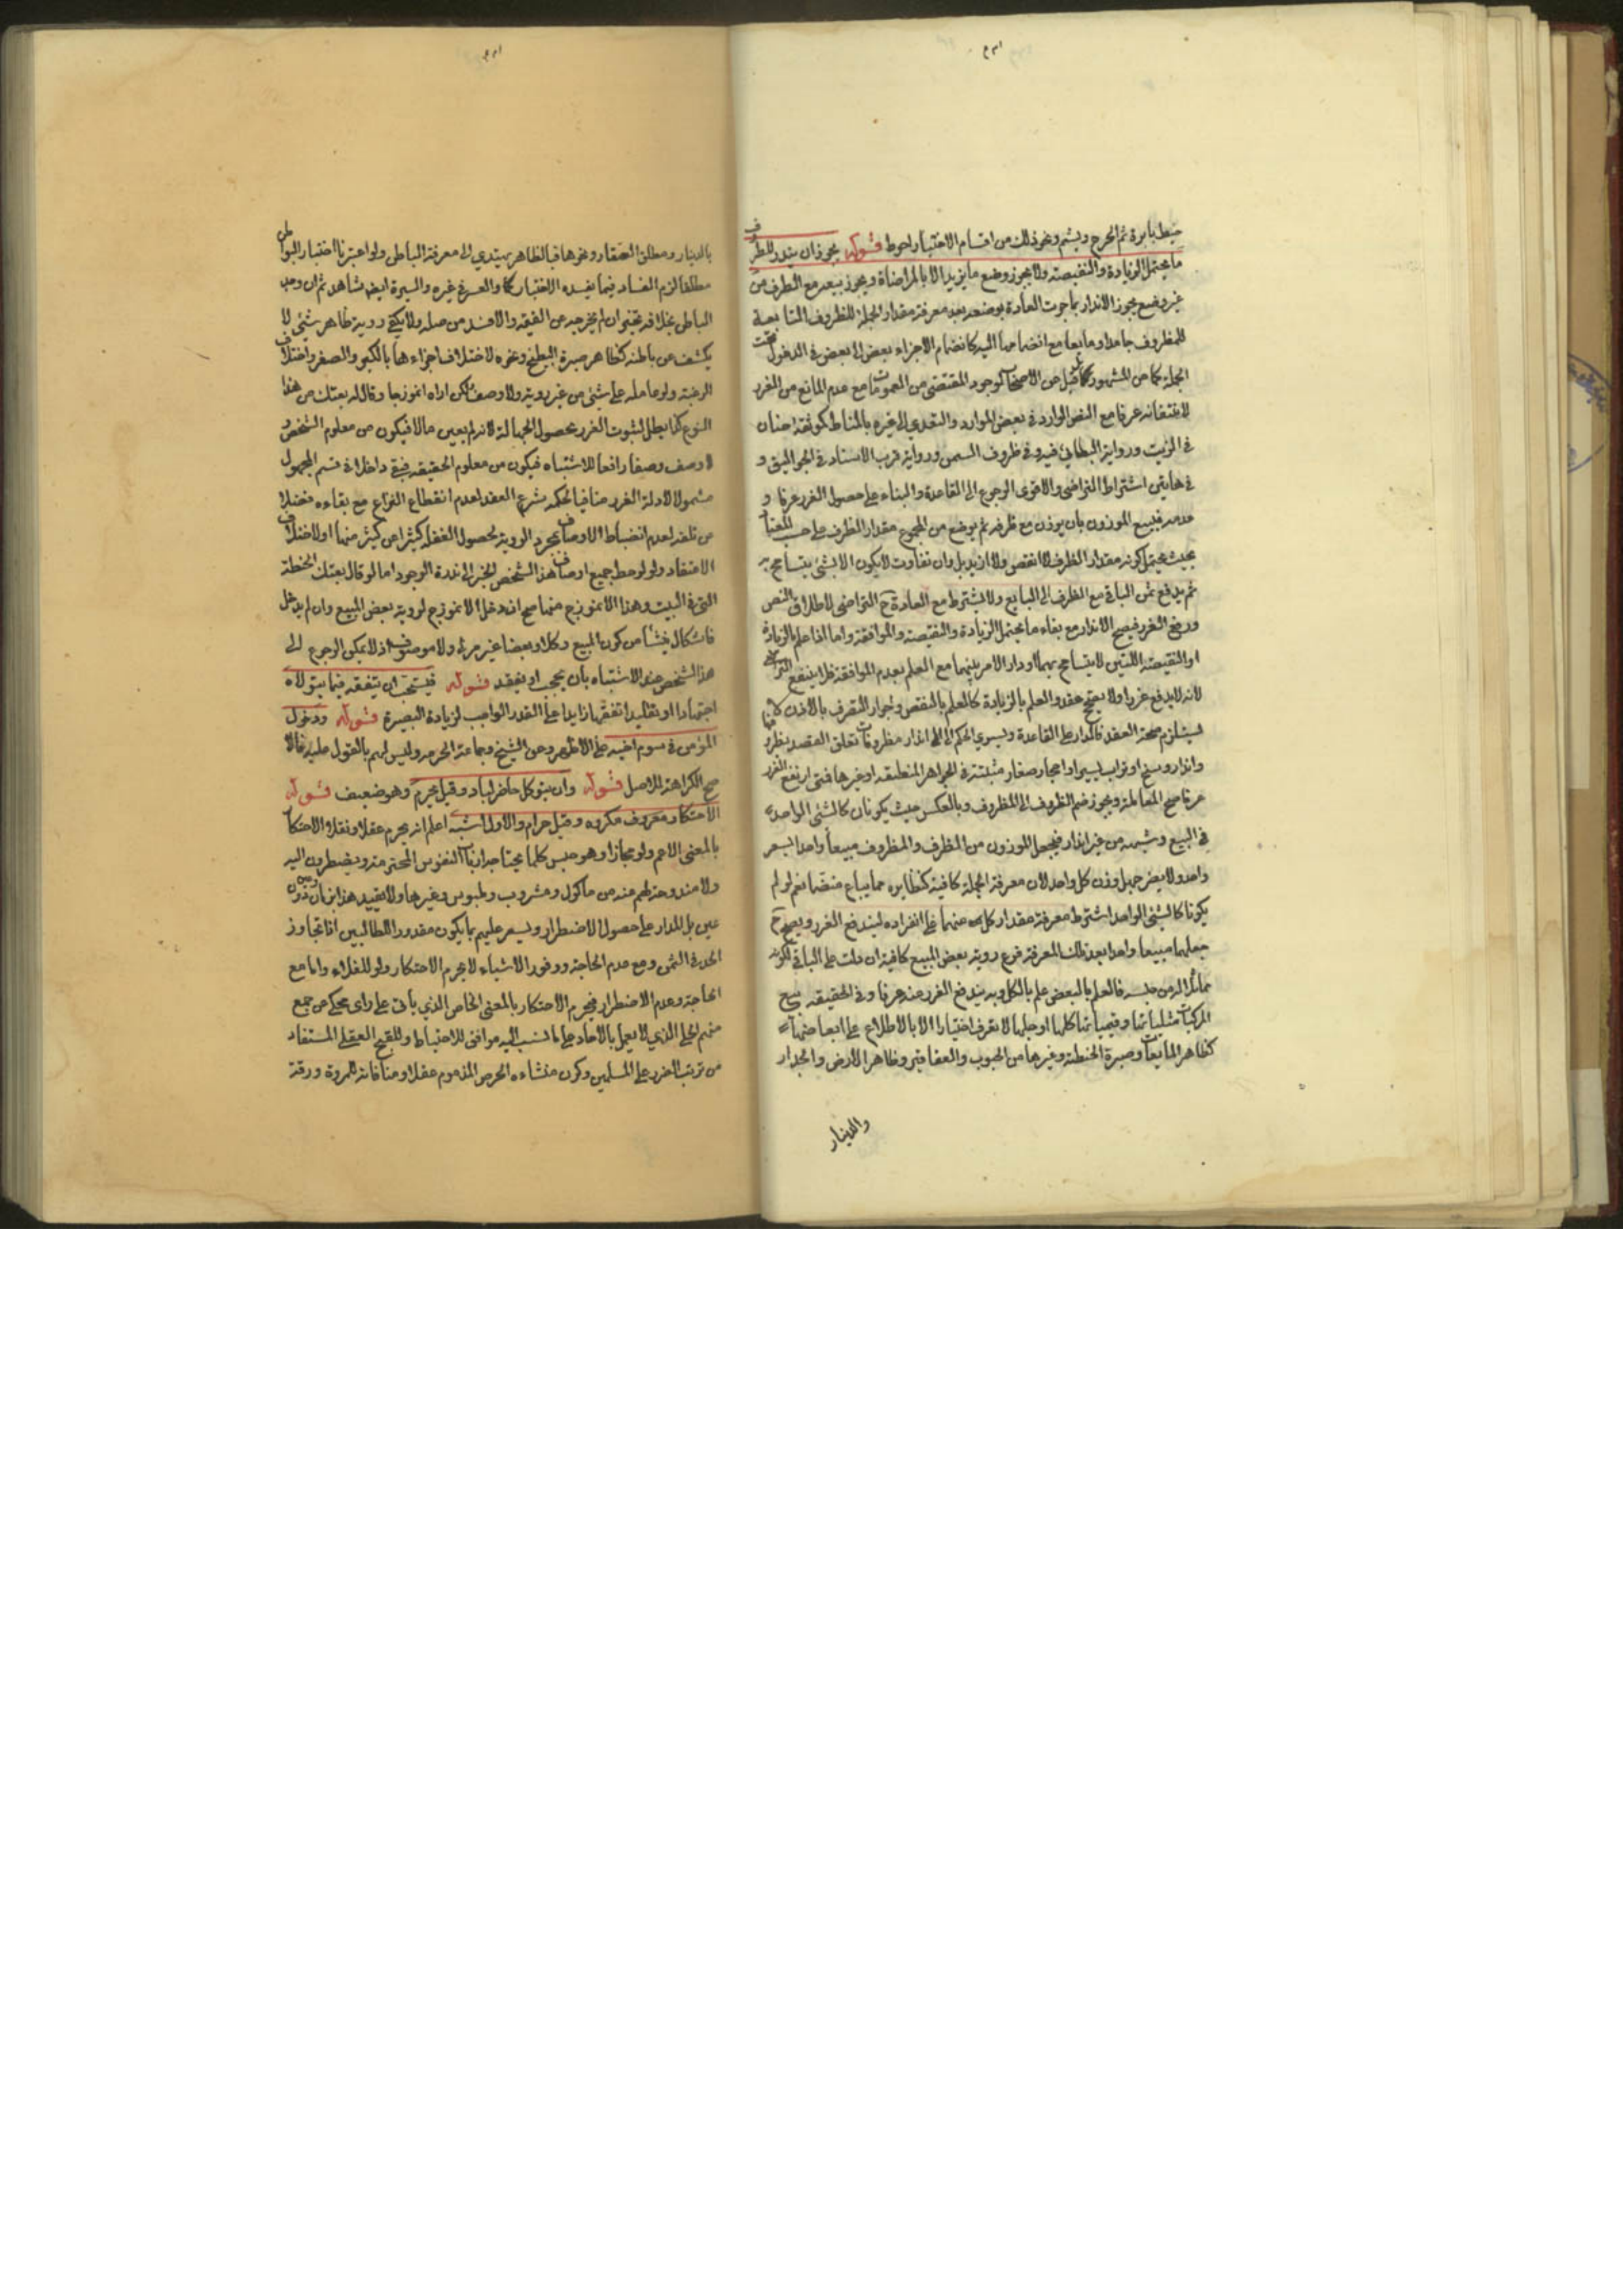 خيط بابرة ثم اخرج ويشم ونحو ذلك من اقسام الاختبار احوط قوله يجوز ان يندر للظروف
ما يحتمل الزيادة والنقيصة ولا يجوز وضع ما يزيد الا بالمراضاة ويجوز بيعه مع الظرف من
غير وضع يجوز الاندار بما جرت العادة بوضعه بعد معرفة مقدار الجملة للظروف التابعة
للمظروف جامدا ومايعا مع انضمامها اليه كانضمام الاجزاء بعض الى بعض في الدخول تحت
الجملة كما من المشهور كما قيل من الاصحاب لوجود المقتضى من العمومات مع عدم المانع من الغرر
لاغتفاره عرفا مع النص الوارد في بعض الموارد والتعدي الى غيره بالمناط كموثقة حنان
في الزيت ورواية البطائني فيه وفي ظروف السمن ورواية قرب الاسناد في الجواليق و
في هاتين اشتراط التراضي والاقوى الرجوع الى القاعدة والبناء على حصول الغرر عرفا و
عدمه فيبيع الموزون بان يوزن مع ظرفه ثم يوضع من المجموع مقدار الظرف على حسب المعتاد
بحيث يحتمل كونه مقدار الظرف لا انقص ولا ازيد بل وان تفاوت لا يكون الا بشئ يتسامح به
ثم يدفع ثمن الباقي مع الظرف الى البايع ولا يشترط مع العادة ح التراضي لاطلاق النص
ورفع الغرر فيصح الاندار مع بقاء ما يحتمل الزيادة والنقيصة والموافقة واما اذا علم بالزيادة
او النقيصة اللتين لا يتسامح بهما او دار الامر بينهما مع العلم بعدم الموافقة فلا ينفع التراضي
لانه لا يدفع غررا ولا يصحح عقد والعلم بالزيادة كالعلم بالنقص وجواز التصرف بالاذن لا
يستلزم صحة العقد فالمدار على القاعدة ويسري الحكم الى انذار مظروفات تعلق القصد بظروفها
واندار وسخ او تراب يسير او احجار صغار مثبتة في الجواهر المنعلقه او غيرها فمتى ارتفع الغرر
عرفا صح المعاملة ويجوز ضم الظروف الى المظروف وبالعكس حيث يكونان كالشئ الواحد
في البيع وشبهه من غير اندار فيجعل الموزون من الظرف والمظروف مبيعا واحدا بسعر
واحد ولا يضر جهل وزن كل واحد لان معرفة الجملة كافية كنظايره مما يباع منضما نعم لو لم
يكونا كالشئ الواحد اشترط معرفة مقدار كل منهما على انفراده ليندفع الغرر ويصح ح
جعلهما مبيعا واحدا بعد تلك المعرفة فرع روية بعض المبيع كافية ان دلت على الباقي لكونه
مماثلا له من جنسه فالعلم بالبعض علم بالكل وبه يندفع الغرر عنه عرفا وفي الحقيقه بيع
المركبات مثلياتها وقيمياتها كلها او جلها لا تعرف اختيارا الا بالاطلاع على ابعاضها
كظاهر المايعات وصبرة الحنطة وغيرها من الحبوب والعقاقير وظاهر الارض والجدار
والدينار
بالدينار ومطلق العقار ونحوها فبالظاهر يهتدي الى معرفة الباطن ولو اعتبرنا اختبار البواطن
مطلقا لزم الفساد فيما يفسده الاختبار كما والعسر في غيره والسيرة ايضا شاهد ثم ان وجد
الباطن بخلافه تخير ان لم يخرجه عن الحقيقة والا فسد من اصله ولا يكفي روية ظاهر شئ لا
يكشف عن باطنه كظاهر صبرة البطيخ ونحوه لاختلاف اجزاءها بالكبر والصغر واختلاف
الرغبة ولو عامله على شئ من غير روية ولا وصف لكن اراه انموذجا وقال له بعتك من هذا
النوع كذا بطل لثبوت الغرر بحصول الجهالة لانه لم يعين مالا فيكون من معلوم الشخص و
لا وصف وصفا رافعا للاشتباه فيكون من معلوم الحقيقه فبقي داخلا في قسم المجهول
مشمولا لادلة الغرر منافيا لحكمه شرع العقد لعدم انقطاع النزاع مع بقاءه فضلا
من تلفه لعدم انضباط الاوصاف بمجرد الروية لحصول الغفلة كثيرا من كثير منها او لاختلاف
الاعتقاد ولو لوحظ جميع اوصاف هذا الشخص لانجر الى ندرة الوجود اما لو قال بعتك الحنطة
التي في البيت وهذا الانموذج منها صح ان دخل الانموذج لروية بعض المبيع وان لم يدخل
فاشكال ينشأ من كون المبيع وكلا وبعضا غير مرئ ولا موصوف اذ لا يمكن الرجوع الى
هذا الشخص عند الاشتباه بان يحجب او يفقد قوله فيستحب ان يتفقه فيما يتولاه
اجتهادا او تقليدا تفقها زايدا على القدر الواجب لزيادة البصيرة قوله ودخول
المؤمن في سوم اخيه على الاظهر وعن الشيخ وجماعة الحرمه وليس لهم بالقول عليه فالا
صح الكراهة للاصل قوله وان يتوكل حاضر لباد وقيل يحرم وهو ضعيف قوله
الاحتكار معروف مكروه وقيل حرام والاول اشبه اعلم انه يحرم عقلا ونقلا الاحتكار
بالمعنى الاعم ولو مجازا وهو حبس كلما يحتاجه ارباب النفوس المحترمة ويضطرون اليه
ولا مندوحة لهم عنه من ماكول ومشروب وملبوس وغيرها ولا تقييد هنا بزمان دون
عين بل المدار على حصول الاضطرار ويسعر عليهم بما يكون مقدورا للطالبين اذا تجاوز
الحد في الثمن ومع عدم الحاجة ووفور الاشياء لا يحرم الاحتكار ولو للغلاء واما مع
الحاجة وعدم الاضطرار فيحرم الاحتكار بالمعنى الخاص الذي ياتى على راى محكي عن جمع
منهم الحلي الذي لا يعمل بالاحاد على ما نسب اليه موافق للاحتياط وللقبح العقلي المستفاد
من ترتب الضرر على المسلمين وكون منشاءه الحرص المذموم عقلا ومنافاته للمروة ورقة